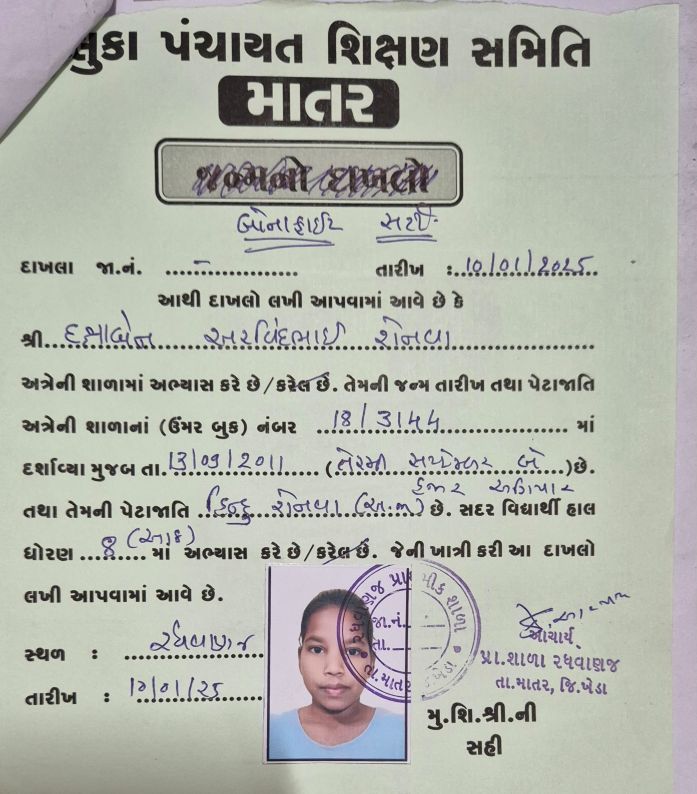 લુકા પંચાયત શિક્ષણ સમિતિ
માતર
જન્મનો દાખલો
બોનાફાઈટ સર્ટી
દાખલા જા.નં. ..... - ..... તારીખ :..10/01/2025..
આથી દાખલો લખી આપવામાં આવે છે કે
શ્રી....દક્ષાબેન અરવિંદભાઈ શેનવા....
અત્રેની શાળામાં અભ્યાસ કરે છે/કરેલ છે. તેમની જન્મ તારીખ તથા પેટાજાતિ
અત્રેની શાળાનાં (ઉંમર બુક) નંબર ...18/3144... માં
દર્શાવ્યા મુજબ તા.13/09/2011....(તેરમી સપ્ટેમ્બર બે)છે.
હજાર અગિયાર
તથા તેમની પેટાજાતિ ..હિન્દુ શેનવા (અ.જા) છે. સદર વિદ્યાર્થી હાલ
ધોરણ ...8 (આઠ).. માં અભ્યાસ કરે છે/કરેલ છે. જેની ખાત્રી કરી આ દાખલો
લખી આપવામાં આવે છે.
સ્થળ : રધવાણજ
તારીખ : 10/01/25
રધવાણજ પ્રાથમીક શાળા
જા.નં.
તા.
તા.માતર ખેડા
આચાર્ય
પ્રા.શાળા રધવાણજ
તા.માતર, જિ.ખેડા
મુ.શિ.શ્રી.ની
સહી